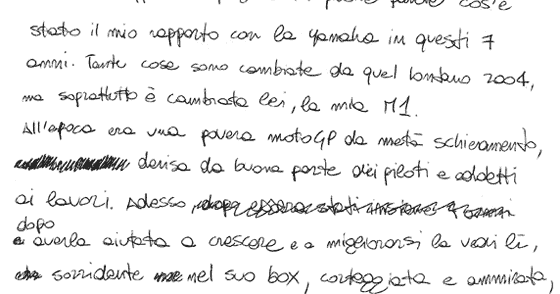 cos'è
stato il mio rapporto con la Yamaha in questi 7
anni. Tante cose sono cambiate da quel lontano 2004,
ma soprattutto è cambiata lei, la mia M1.
All'epoca era una povera motoGP da metà schieramento,
derisa da buona parte dei piloti e addetti
ai lavori. Adesso
dopo
averla aiutata a crescere e a migliorarsi la vedi lì,
sorridente nel suo box, corteggiata e ammirata,